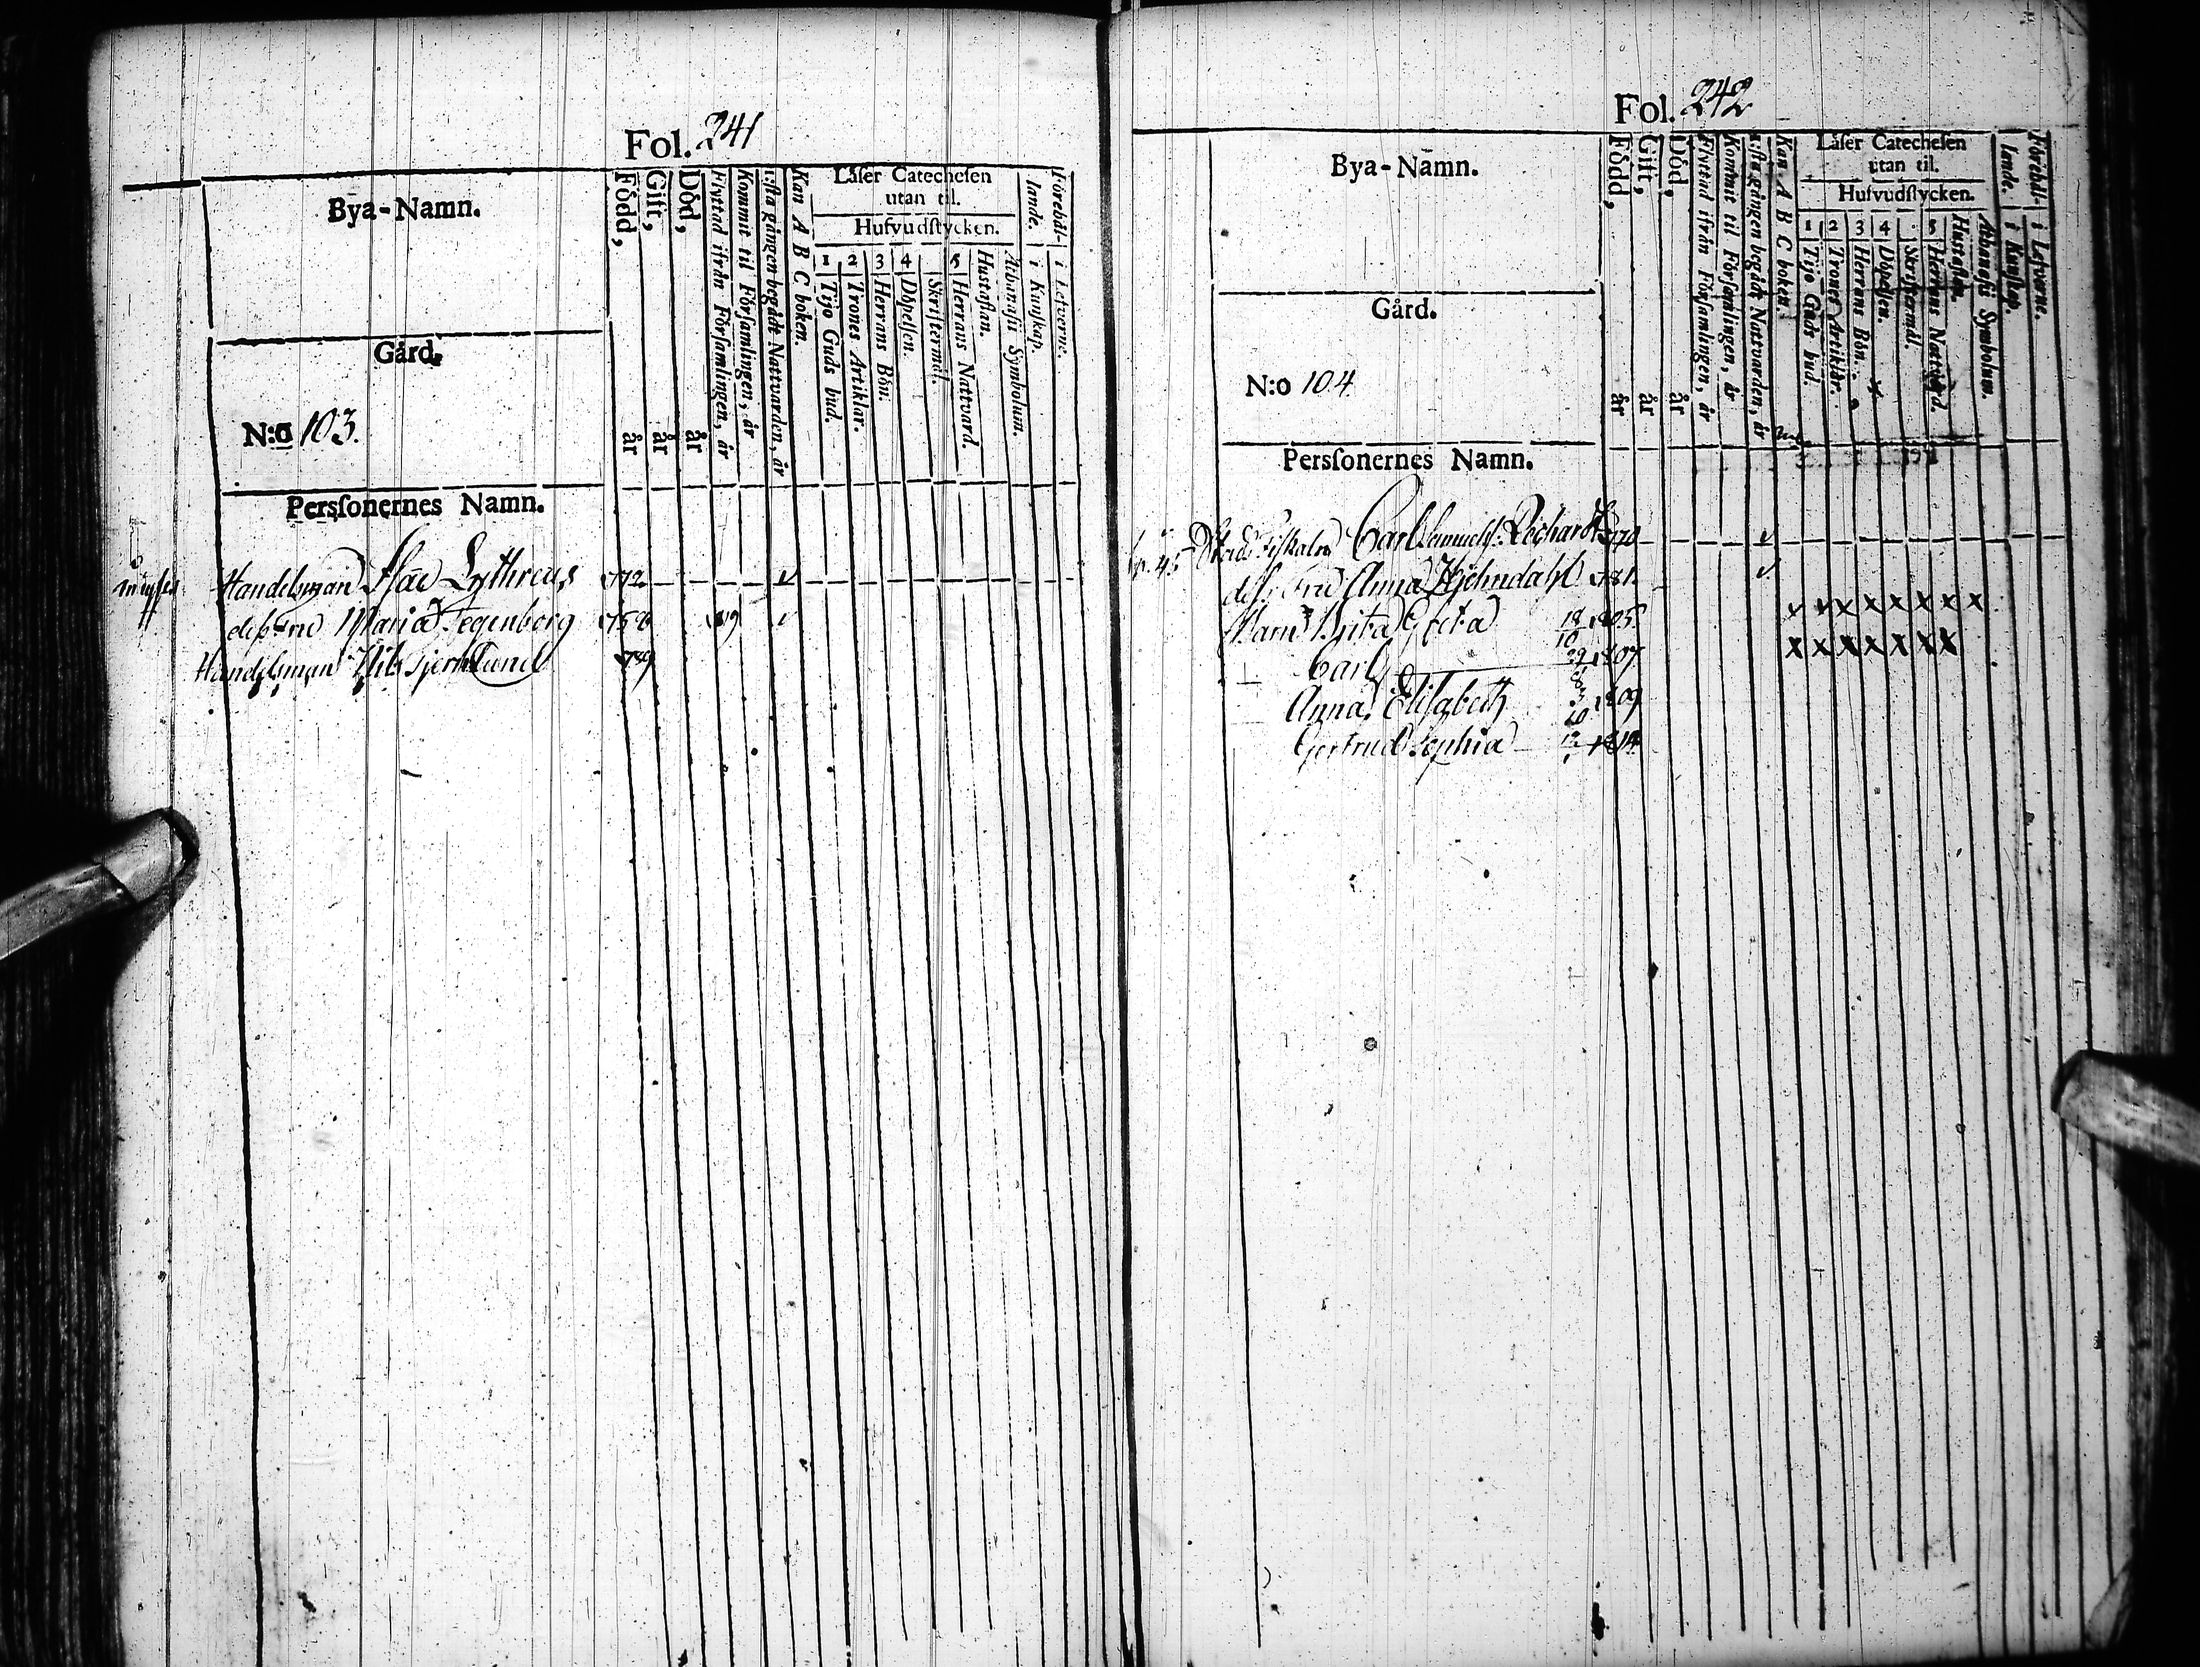 Fol. 241
Bya-Namn.
Gård.
N:o 103.
Persſonernes Namn.
Född, år
Gift, år
Död, år
Flyttad ifrån Förſamlingen, år
Kommit til Förſamlingen, år
1:ſta gången begådt Nattvarden, år
Kan A B C boken.
Läſer Catecheſen
utan til.
Hufvudſtycken.
1 Tijo Guds bud.
2 Trones Artiklar.
3 Herrans Bön.
4 Döpelſen.
Skriftermål.
5 Herrans Nattvard.
Huſtaflan.
Athanaſii Symbolum.
Förehål-
lande.
i Kunſkap.
i Lefverne.
Handelsman Isac Lythreus 772
dess Fru Maria Tegenborg 758 819
Handelsman Nils Tjernlund 789
Fol. 242
Bya-Namn.
Gård.
N:o 104
Persſonernes Namn.
Född, år
Gift, år
Död, år
Flyttad ifrån Förſamlingen, år
Kommit til Förſamlingen, år
1:ſta gången begådt Nattvarden, år
Kan A B C boken.
Läſer Catecheſen
utan til.
Hufvudſtycken.
1 Tijo Guds bud.
2 Trones Artiklar.
3 Herrans Bön.
4 Döpelſen.
Skriftermål.
5 Herrans Nattvard.
Huſtaflan.
Athanaſii Symbolum.
Förehål-
lande.
i Kunſkap.
i Lefverne.
Stads Fiskalen Carl Samuels: Richardt 770
dess Fru Anna Hjelmdahl 781
Barn Brita Greta 18/10 1805 x x x x x x x x
Carl 1807 x x x x x x x
Anna Elisabeth 1809
Gertrud Sophia 1814